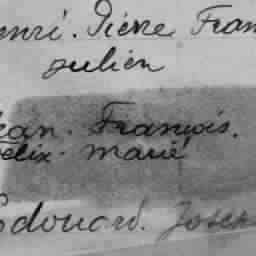 Henri. Pierre Fran
Julien
Jean. François.
Félix. Marie
Edouard. Josep